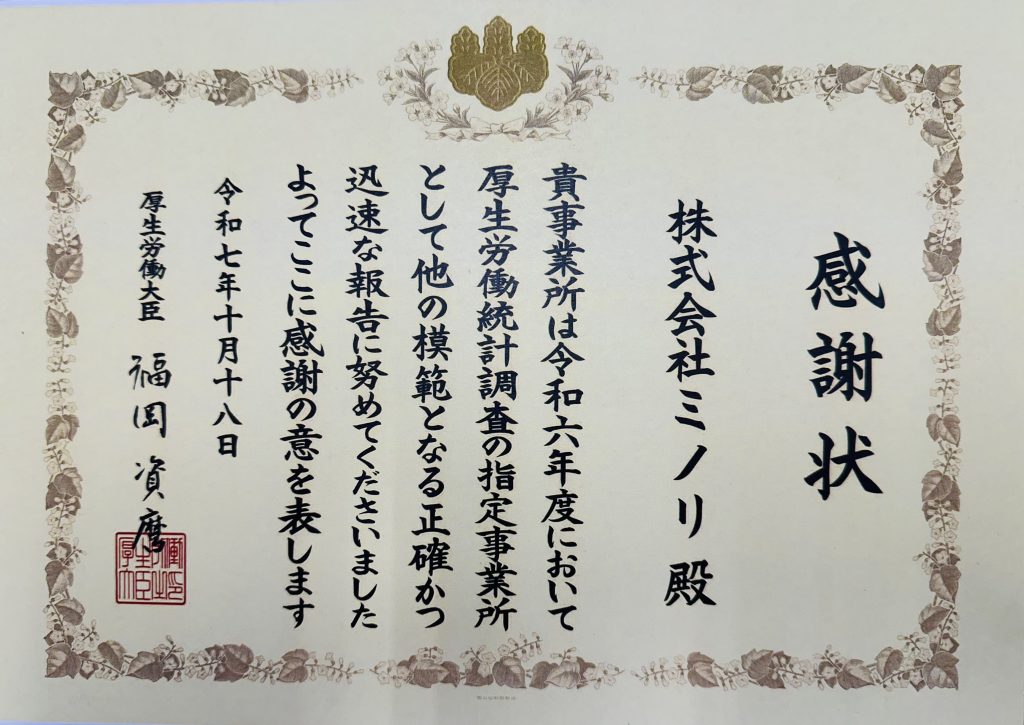 感謝状
株式会社ミノリ殿
貴事業所は令和六年度において
厚生労働統計調査の指定事業所
として他の模範となる正確かつ
迅速な報告に努めてくださいました
よってここに感謝の意を表します
令和七年十月十八日
厚生労働大臣 福岡資麿